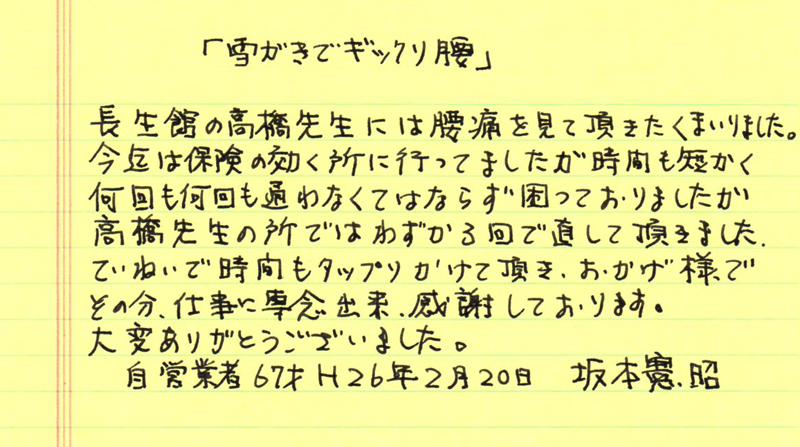 「雪がきでギックリ腰」
長生館の高橋先生には腰痛を見て頂きたくまいりました。
今迄は保険の効く所に行ってましたが時間も短かく
何回も何回も通わなくてはならず困っておりましたが
高橋先生の所ではわずか3回で直して頂きました、
ていねいで時間もタップリかけて頂き、おかげ様で
その分、仕事に専念出来、感謝しております。
大変ありがとうございました。
自営業者67才 H26年2月20日 坂本憲昭